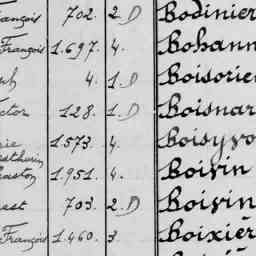 ançois 702. 2 D Bodinier
François 1.697. 4. Bohann
ph 4. 1 D Boisorie
ctor 128. 1 D Boisnar
rie 1.573. 4. Boisyvo
athurin
aston 1.951. 4. Boivin
est 703. 2. D Boivin
François 1.460. 3 Boixièr